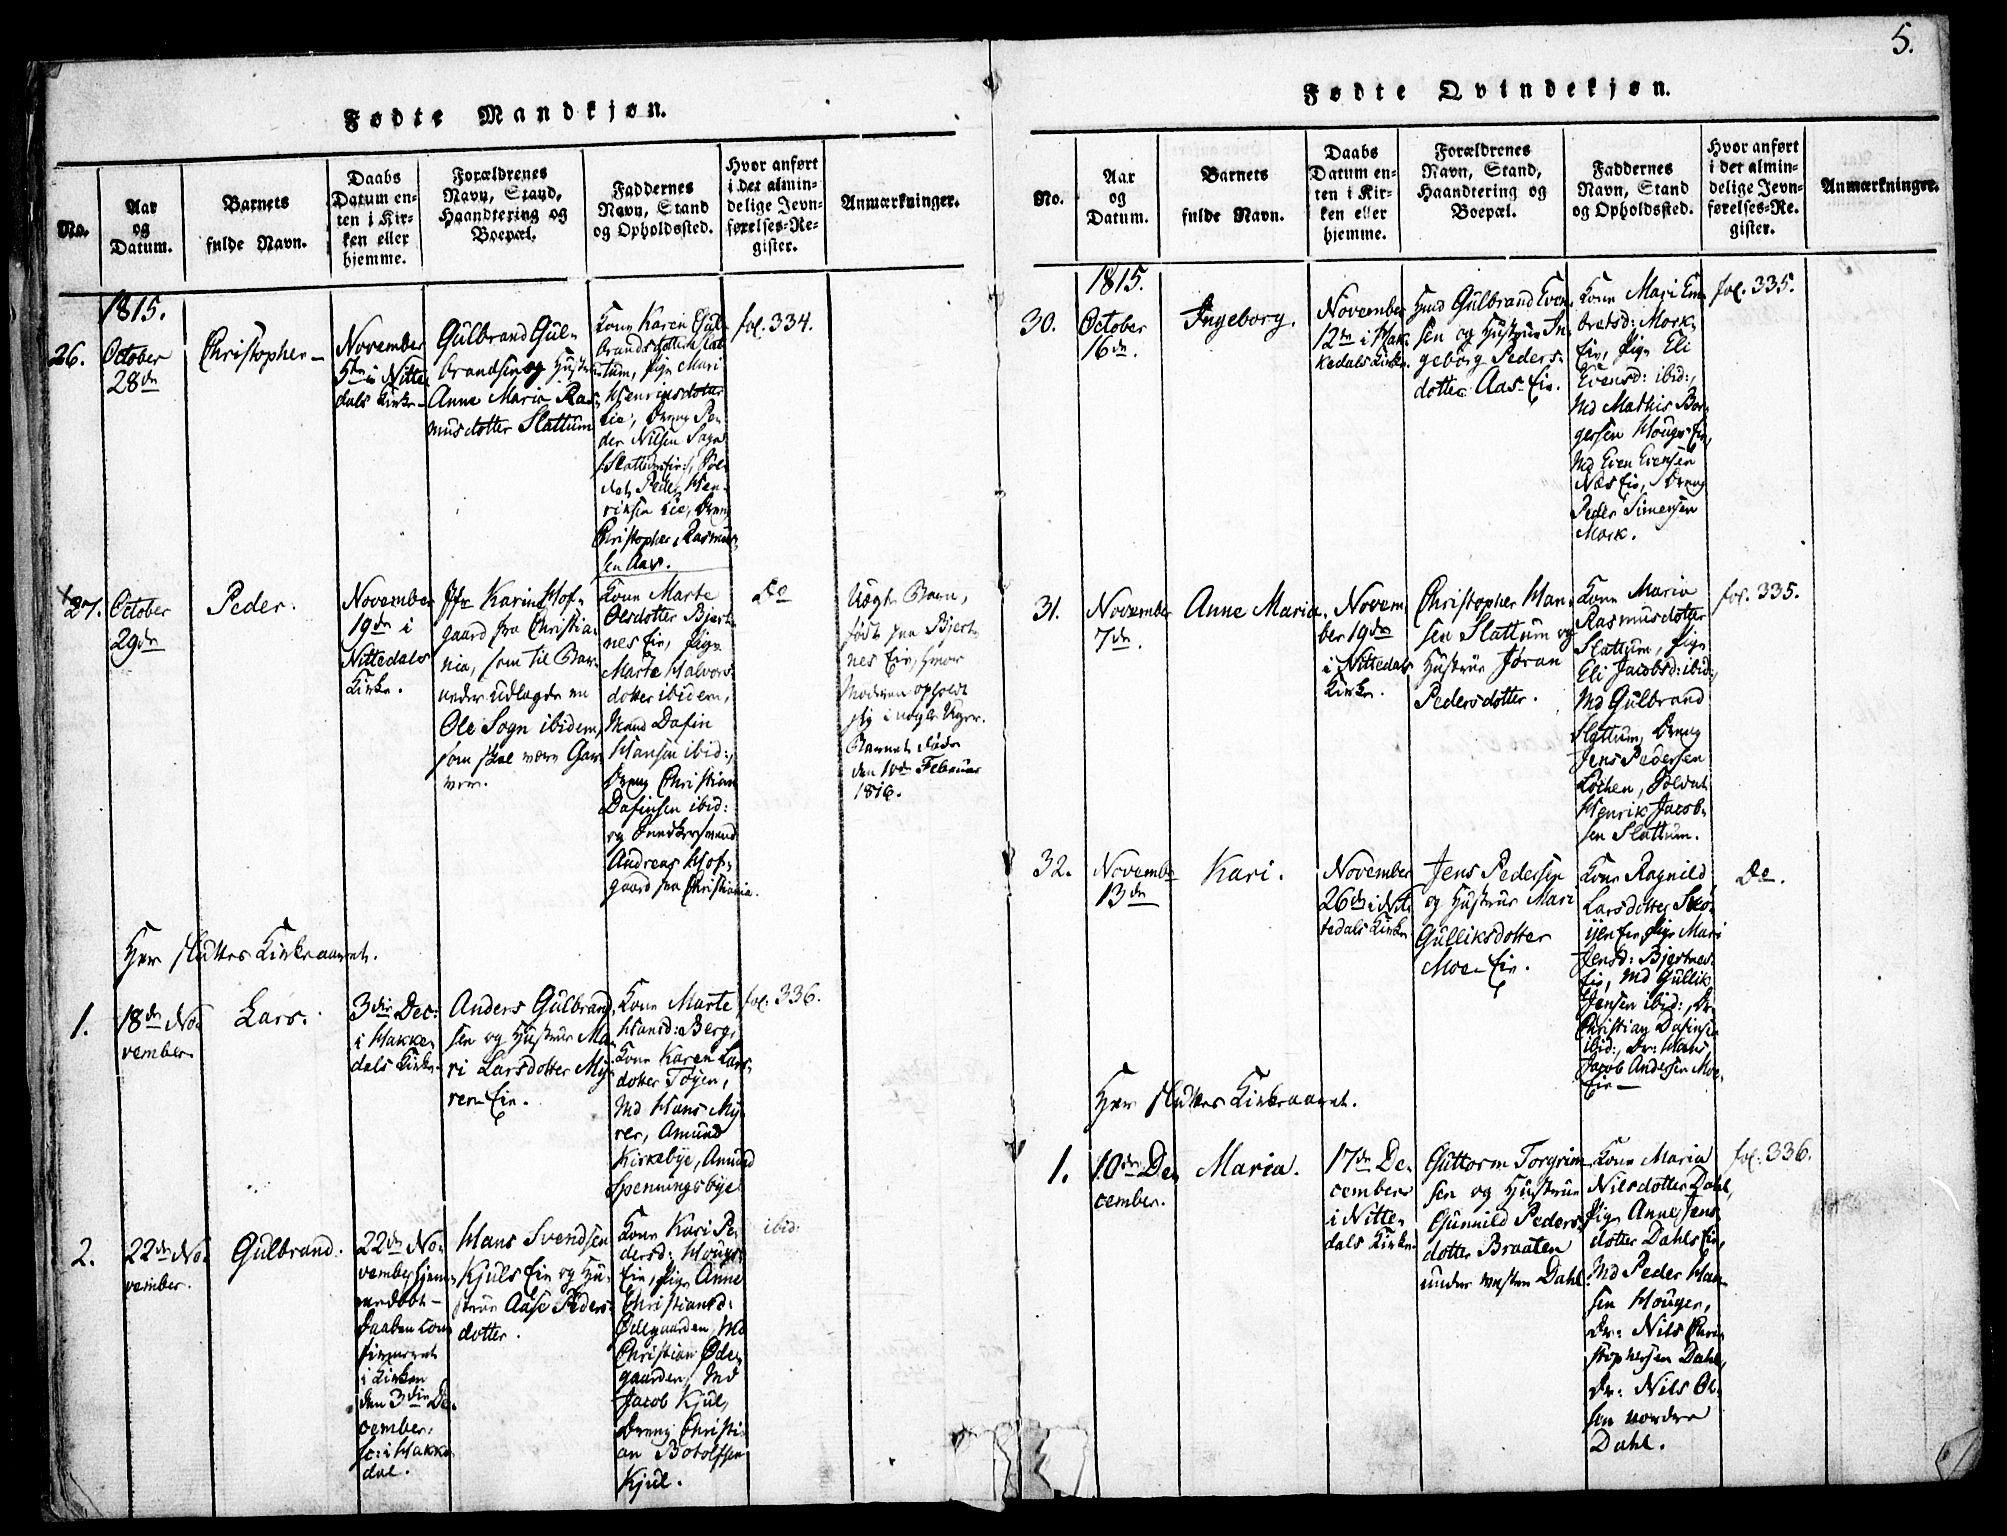 5.
Fødte Mandkjøn.
No.
Aar
og
Datum.
Barnets
fulde Navn.
Daabs
Datum en-
ten i Kir-
ken eller
hjemme.
Forældrenes
Navn, Stand,
Haandtering og
Boepæl.
Faddernes
Navn, Stand
og Opholdssted.
Hvor anført
i det almin-
delige Jevn-
førelses-Re-
gister.
Anmærkninger.
1815.
26.
October
28de
Christopher
November
5te i Nitte-
dals Kirke
Gulbrand Gul-
brandsen og Hustru
Anne Maria Ras-
musdotter Slattum
Kone Karen Gul-
brandsdotter Slat-
tum, Pige Mari
Henriksdotter
Lie, Dreng Pe-
der Nilsen
Slattum Eie, Sol-
dat Peder Hen-
riksen Lie, Dreng
Christopher Rasmus-
sen Aas.
fol. 334.
27.
October
29de
Peder.
November
19de i
Nittedals
Kirke.
Jfr Karine Hof-
gaard fra Christia-
nia, som til Bar-
nefader udlagde en
Ole Sogn ibidem,
som skal være Gar-
ver.
Kone Marte
Olsdotter Bjert-
nes Eie, Pige
Marte Halvors-
dotter ibidem,
Mand Dafin
Hansen ibid:,
Dreng Christian
Dafinsen ibid:
og
Andreas Hof-
gaard fra Christiania.
Do
Uægte Barn,
født paa Bjert-
nes Eie, hvor
Moderen opholdt
sig i nogle Uger.
Barnet døde
den 10de Februar
1816.
Her sluttes Kirkeaaret.
1.
18de No-
vember.
Lars.
3die Dec:
i Hakke-
dals Kirke.
Anders Gulbrand-
sen og Hustrue Ma-
ri Larsdotter My-
rer Eie.
Kone Marte
Hansd: Berg,
Kone Karen Lars-
dotter Tøyen,
Md Hans My-
rer, Amund
Kirkebye, Amund
Spenningsbye
fol. 336.
2.
22de No-
vember.
Gulbrand.
22de No-
vember hjem-
medøbt -
Daaben con-
firmeret
i Kirken
den 3die De-
cember.
sc: i Hakke-
dal.
Hans Svendsen
Kjuls Eie og Hu-
strue Aase Peders-
dotter.
Kone Kari Pe-
dersd: Hougs
Eie, Pige Anne
Christiansd:
Ødegaarden, Md
Christian Øde-
gaarden, Md
Jacob Kjul,
Dreng Christi-
an Botolfsen
Kjul.
ibid.
Fødte Qvindekjøn.
No.
Aar
og
Datum.
Barnets
fulde Navn.
Daabs
Datum en-
ten i Kir-
ken eller
hjemme.
Forældrenes
Navn, Stand,
Haandtering og
Boepæl.
Faddernes
Navn, Stand
og Opholdssted.
Hvor anført
i det almin-
delige Jevn-
førelses-Re-
gister.
Anmærkninger.
1815.
30.
October
16de.
Ingeborg.
November
12te i Hak-
kedals Kirke.
Hmd Gulbrand Even-
sen og Hustrue In-
geborg Peders-
dotter Aas-Eie.
Kone Mari Em-
bretsd: Mork-
Eie, Pige Eli
Evensd: ibid:,
Md Mathis Bor-
gersen Houger Eie,
Md Even Evensen
Næs Eie, Dreng
Peder Simensen
Mork.
fol. 335.
31.
November
7de.
Anne Maria.
Novem-
ber 19de
i Nittedals
Kirke.
Christopher Han-
sen Slattum og
Hustrue Jøran
Pedersdotter.
Kone Maria
Rasmusdotter
Slattum, Pige
Eli Jacobsd: ibid:,
Md Gulbrand
Slattum, Dreng
Jens Pedersen
Løchen, Soldat
Henrik Jacob-
sen Slattum.
fol. 335.
32.
November
13de
Kari.
November
26de i Nit-
tedals Kirke
Jens Pedersen
og Hustrue Mari
Gulliksdotter
Moe-Eie.
Kone Ragnild
Larsdotter Skø-
yen Eie, Pige Mari
Jensd: Bjertnes
Eie, Md Gullik
Jensen ibid:, Dr:
Christian Dafinsen
ibid:, Dr: Hans
Jacob Andersen Moe-
Eie
Do.
Her sluttes Kirkeaaret.
1.
10de De-
cember.
Maria.
17de De-
cember
i Nitte-
dals Kirke
Guttorm Torgrim-
sen og Hustrue
Gunnild Peders-
dotter Braaten
under vestre Dahl
Kone Maria
Nilsdotter Dahl,
Pige Anne Jens-
dotter Dahls Eie,
Md Peder Han-
sen Houger,
Dr: Nils Chri-
stophersen Dahl,
Dr: Nils Ol-
sen nordre
Dahl.
fol. 336.